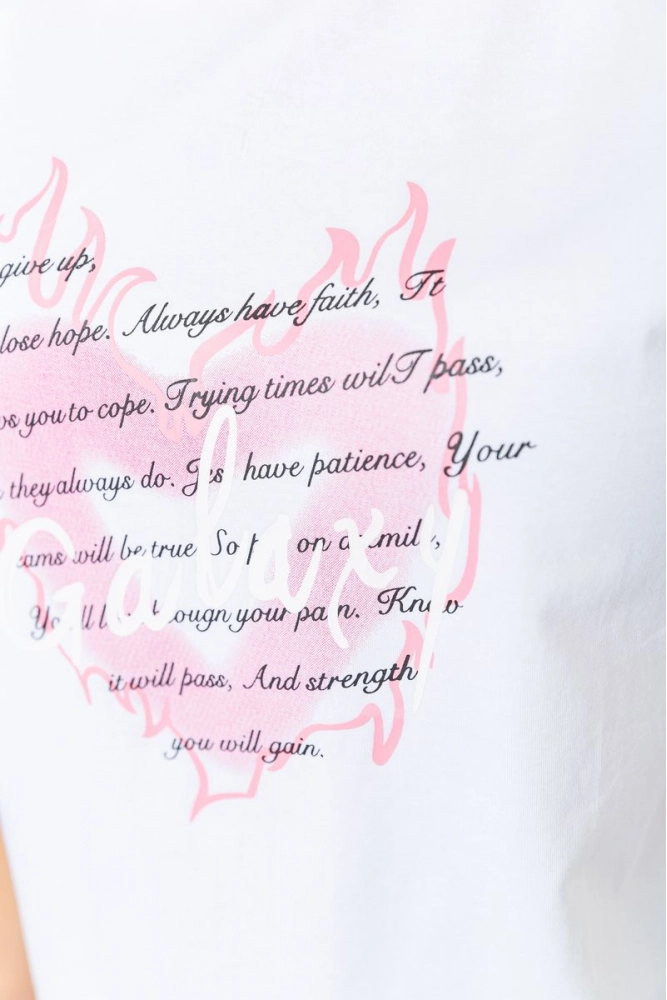 give up,
lose hope. Always have faith, Tt
you to cope. Trying times wilT pass,
they always do. have patience, Your
will be true So on
your Know
it will pass, And strength
you will gain.
Galaxy